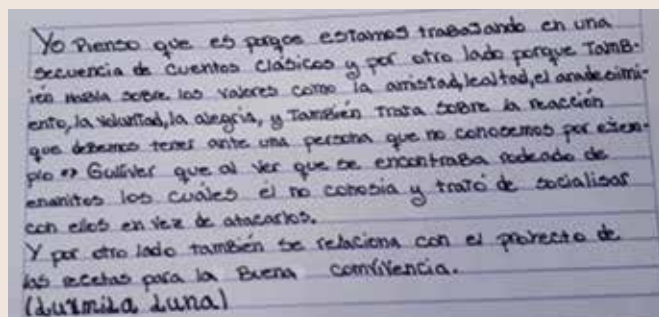 Yo Pienso que es porqoe estamos trabajando en una
secuencia de cuentos clásicos y por otro lado porque Tamb-
ién Habla sobre los valores como la amistad, lealtad, el aradesimi-
ento, la voluntad, la alegria, y También Trata sobre la reacción
que debemos tener ante una persona que no conocemos por ejem-
plo Gulliver que al ver que se encontraba rodeado de
enanitos los cuales él no conosia y trató de socialisar
con ellos en vez de atacarlos.
Y por otro lado también se relaciona con el proyecto de
las recetas para la Buena convivencia.
(Luzmila Luna)